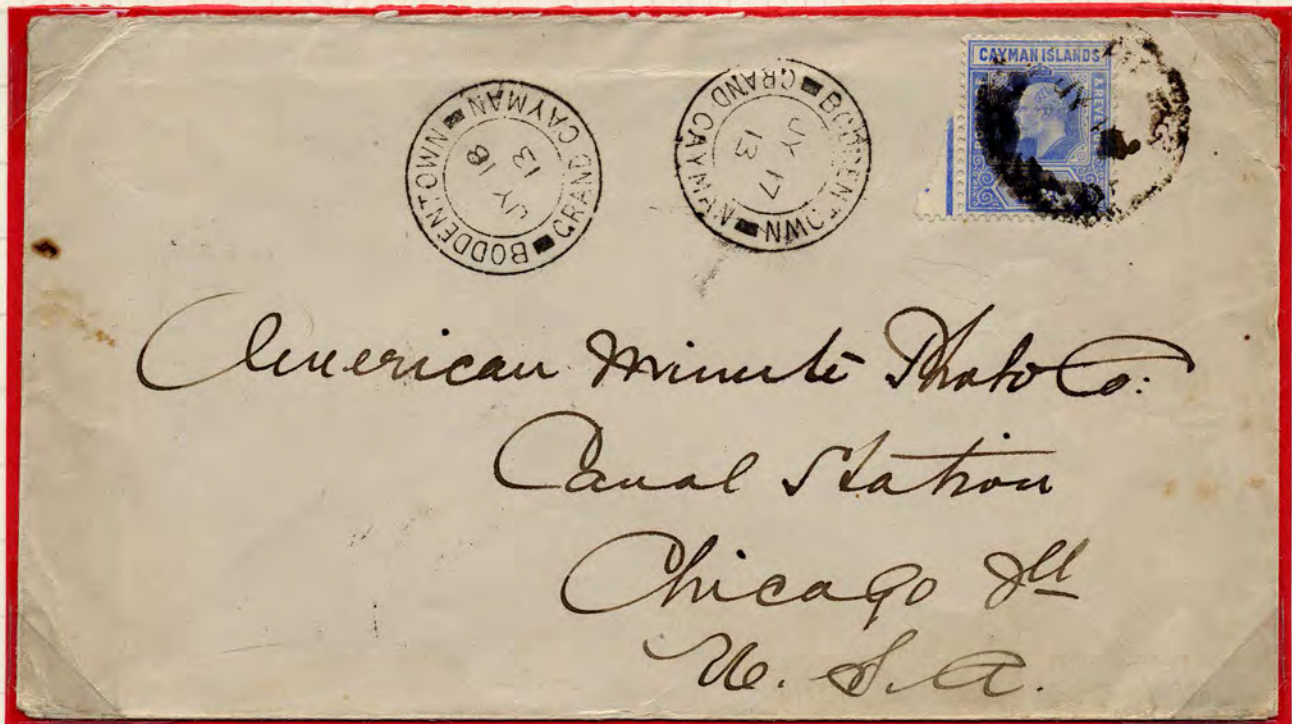 BODDENTOWN
GRAND CAYMAN
JY 18
13
BODDENTOWN
GRAND CAYMAN
JY 17
13
CAYMAN ISLANDS
JY
American Minute Photo Co:
Canal Station
Chicago Ill
U. S. A.